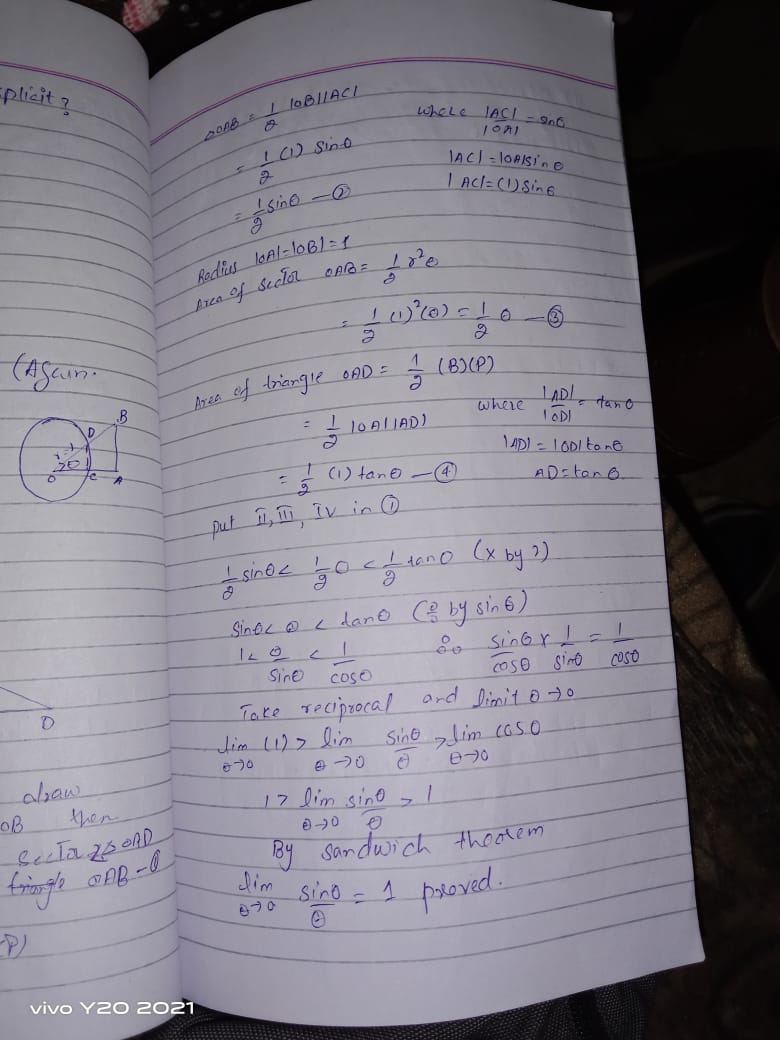 plicit?
(Again.
B
D
r=1
θ
O C A
D
draw
OB then
sector OAD
triangle OAB - ①
P)
△OAB = 1/2 |OB||AC| where |AC|/|OA| = sinθ
= 1/2 (1) sinθ |AC| = |OA|sinθ
= 1/2 sinθ — ② |AC| = (1) sinθ
Radius |OA| = |OB| = 1
Area of sector OAB = 1/2 r²θ
= 1/2 (1)²(θ) = 1/2 θ — ③
Area of triangle OAD = 1/2 (B)(P)
= 1/2 |OA||AD| where |AD|/|OD| = tanθ
= 1/2 (1) tanθ — ④ |AD| = |OD| tanθ
AD = tanθ
put II, III, IV in ①
1/2 sinθ < 1/2 θ < 1/2 tanθ (x by 2)
sinθ < θ < tanθ (÷ by sinθ)
1 < θ/sinθ < 1/cosθ ∵ sinθ/cosθ × 1/sinθ = 1/cosθ
Take reciprocal and limit θ→0
lim θ→0 (1) > lim θ→0 sinθ/θ > lim θ→0 cosθ
1 > lim θ→0 sinθ/θ > 1
By sandwich theorem
lim θ→0 sinθ/θ = 1 proved.
vivo Y20 2021